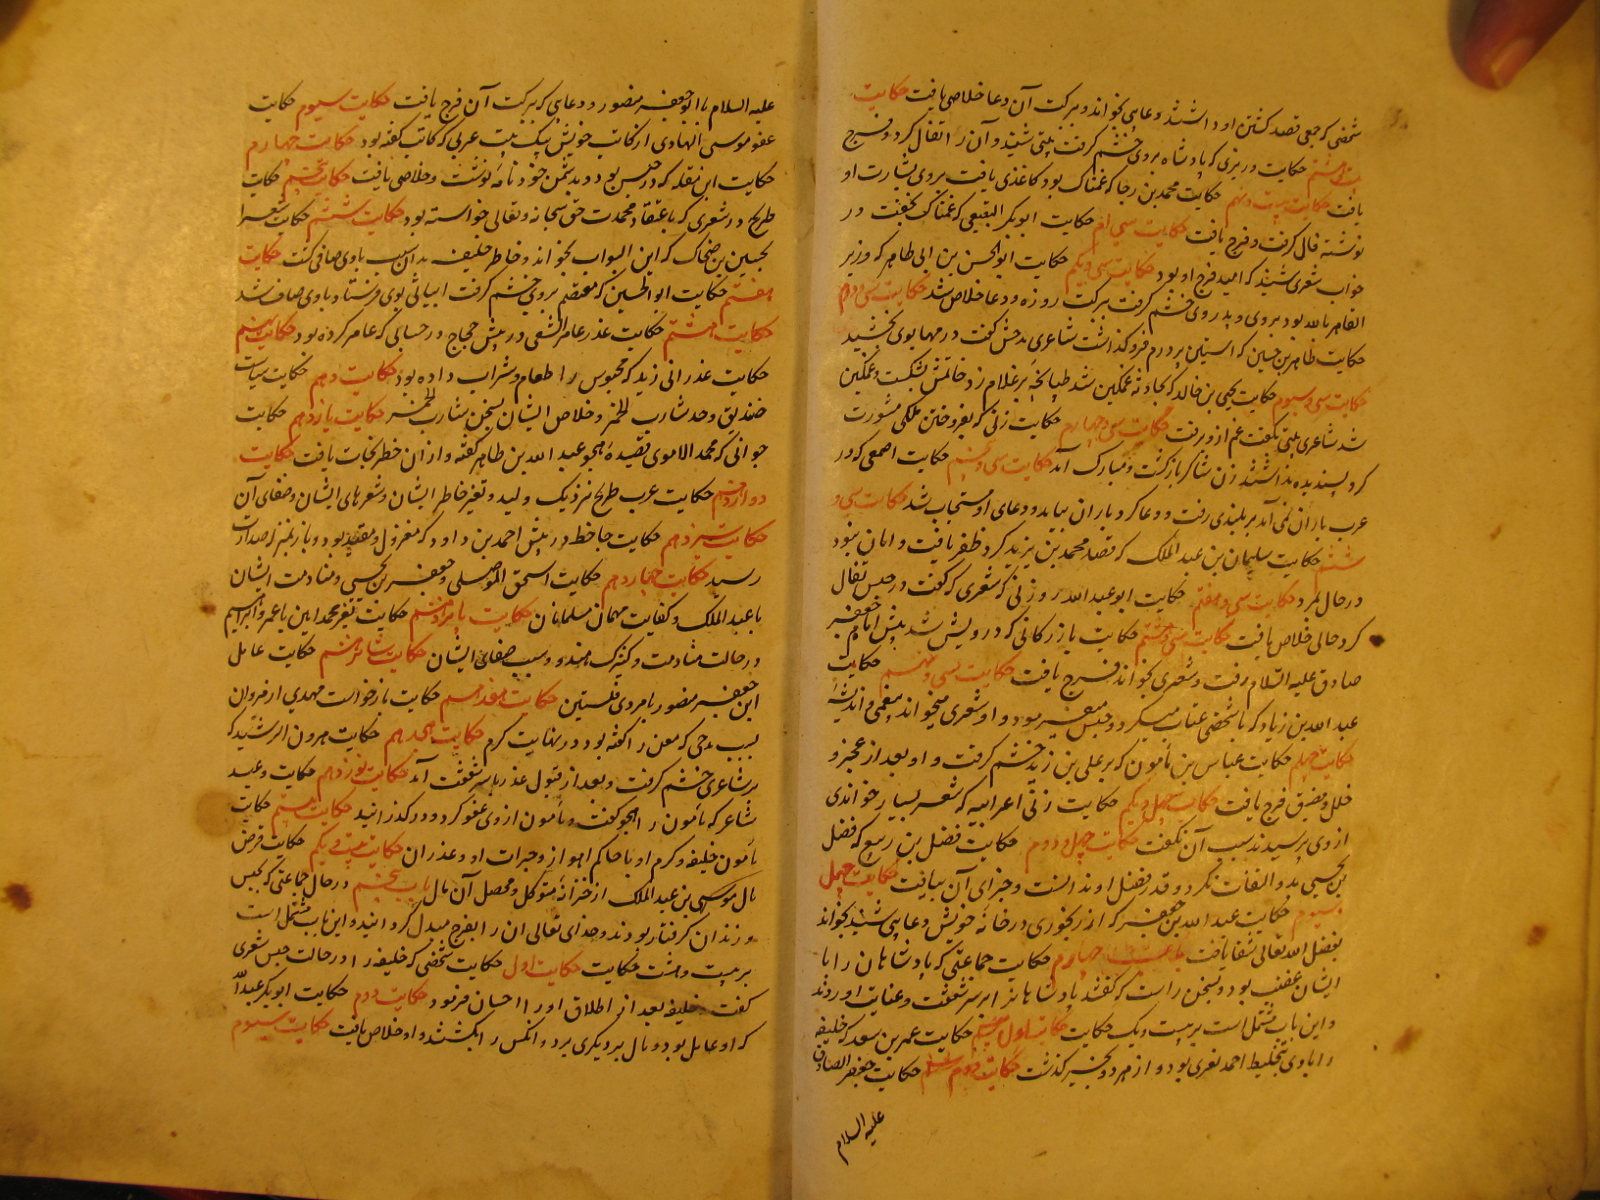 شخصی که جمعی قصد کشتن او داشتند و دعایی بخواند و ببرکت آن دعا خلاصی یافت حکایت
بیست و هشتم حکایت وزیری که پادشاه بروی خشم گرفت بیتی شنید و آن را تفال کرد و فرج
یافت حکایت بیست و نهم حکایت محمد بن رجا که غمناک بود کاغذی یافت بروی بشارت او
نوشته فال گرفت و فرج یافت حکایت سی ام حکایت ابوبکر الثقفی که غمناک بخفت در
خواب شعری شنید که امید فرج او بود حکایت سی و یکم حکایت ابوالحسن بن ابی طاهر که وزیر
القاهر بالله بود بروی و پدر وی خشم گرفت ببرکت روزه و دعا خلاص شد حکایت سی و دوم
حکایت طاهر بن حسین که آستین پر درم فرو گذاشت شاعری مدحش گفت درمها بوی بخشید
حکایت سی و سیوم حکایت یحیی بن خالد که بحادثه غمگین شد طپانچه بر غلام زد خاتمش بشکست و غمگین
شد شاعری بیتی بگفت غم از و برفت حکایت سی و چهارم حکایت زنی که بفروختن ملکی مشورت
کرد پسندیده نداشتند زن شاکر بازگشت و مبارک آمد حکایت سی و پنجم حکایت اصمعی که در
عرب باران نمی آمد بر بلندی رفت و دعا کرد باران بیامد و دعای او مستجاب شد حکایت سی و
ششم حکایت سلیمان بن عبد الملک که قصد محمد بن یزید کرد ظفر یافت و امان نبود
در حال بمرد حکایت سی و هفتم حکایت ابو عبد الله روزنی که شعری که گفت در حبس تفال
کرد حالی خلاص یافت حکایت سی و هشتم حکایت بازرگانی که درویش شد پیش امام جعفر
صادق علیه السلام رفت و شعری بخواند فرج یافت حکایت سی و نهم حکایت
عبد الله بن زیاد که با شخصی عتاب میکرد و حبس میفرمود و او شعری میخواند بیغمی و اندیشه
حکایت چهلم حکایت عباس بن مأمون که بر علی بن زید خشم گرفت و او بعد از عجز و
خلل و مضیق فرج یافت حکایت چهل و یکم حکایت زنی اعرابیه که شعر بسیار خواندی
از وی پرسیدند سبب آن بگفت حکایت چهل و دوم حکایت فضل بن ربیع که فضل
بن یحیی بدو التفات نکرد و قدر فضل او ندانست و جزای آن بیافت حکایت چهل
و سیوم حکایت عبد الله بن جعفر که از رنجوری در خانه خویش دعایی شنید بخواند
بفضل الله تعالی شفا یافت باب چهارم حکایت جماعتی که پادشاهان را با
ایشان غضب بود و بسخن راست که گفتند پادشاهانرا بر سر شفقت و عنایت آوردند
و این باب مشتمل است بر بیست و یک حکایت حکایت اول حکایت عمر بن سعد که خلیفه
را با وی تخلیط احمد نفری بود و از هر دو بخیر گذشت حکایت دوم حکایت جعفر الصادق
علیه السلام
علیه السلام با ابو جعفر منصور و دعایی که ببرکت آن فرج یافت حکایت سیوم حکایت
عفو موسی الهادی از کاتب خویش بیک بیت عربی که کاتب گفته بود حکایت چهارم
حکایت ابن مقله که در حبس بود و بدشمن خود نامه نوشت و خلاصی یافت حکایت پنجم حکایت
طریح در شعری که باعتقاد و محمدت حق سبحانه و تعالی خواسته بود حکایت ششم حکایت شعرا
بحسین بن ضحاک که ابن البواب بخواند و خاطر خلیفه بدان سبب با وی صافی گشت حکایت
هفتم حکایت ابو الحسین که معتصم بروی خشم گرفت ابیاتی بوی فرستاد و با وی صاف شد
حکایت هشتم حکایت عذر عامر الشعبی در پیش حجاج در حسابی که عامر کرده بود حکایت نهم
حکایت عذر انی زید که محبوس را طعام و شراب داده بود حکایت دهم حکایت سیات
ضدیق و حد شارب الخمر و خلاص ایشان بسخن شارب الخمر حکایت یازدهم حکایت
جوانی که محمد الاموی قصیده هجو عبد الله بن طاهر گفته و از آن خطر نجات یافت حکایت
دوازدهم حکایت عرب طریح نزدیک ولید و تغیر خاطر ایشان و شعرهای ایشان و صفای آن
حکایت سیزدهم حکایت جاحظ در پیش احمد بن داود که معزول و مقید بود و باز بمنزله صدارت
رسید حکایت چهاردهم حکایت اسحق الموصلی و جعفر بن یحیی و منادمت ایشان
با عبد الملک و کفایت مهمات مسلمانان حکایت پانزدهم حکایت تغیر محمد امین با عمر و ابراهیم
در حالت منادمت و کنیزک هندو و سبب صفای ایشان حکایت شانزدهم حکایت عامل
ابن جعفر منصور با مروی فلسطین حکایت هفدهم حکایت باز خواست مهدی از مروان
بسبب مدحی که معن را گفته بود در نهایت کرم حکایت هجدهم حکایت هرون الرشید که
بر شاعری خشم گرفت و بعد از قبول عذر با سر شفقت آمد حکایت نوزدهم حکایت دعبد
شاعر که مأمون را هجو گفت و مأمون از وی عفو کرد و درگذرانید حکایت بیستم حکایت
مأمون خلیفه و کرم او با حاکم اهواز و جرات او و عذر آن حکایت بیست و یکم حکایت قرض
مال موسی بن عبد الملک از خزانه متوکل و محصل آن مال باب پنجم در حال جماعتی که بحبس
و زندان گرفتار بودند و خدای تعالی آن را بفرج مبدل گردانید و این باب مشتمل است
بر بیست و هشت حکایت حکایت اول حکایت شخصی که خلیفه را در حالت حبس شعری
گفت و خلیفه بعد از اطلاق او را احسان فرمود حکایت دوم حکایت ابو بکر عبد الله
که او عامل بود و مال بر دیگری برد و آنکس را بکشتند و او خلاص یافت حکایت سیوم